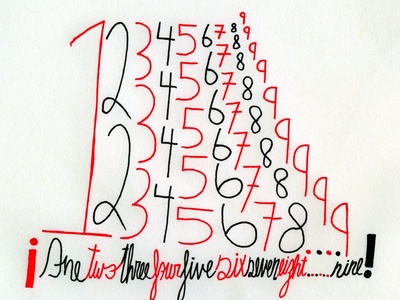 1
2 2
3 3 3
4 4 4 4
5 5 5 5 5
6 6 6 6 6 6
7 7 7 7 7 7 7
8 8 8 8 8 8 8 8
9 9 9 9 9 9 9 9 9
¡One two three four five six seven eight......nine!